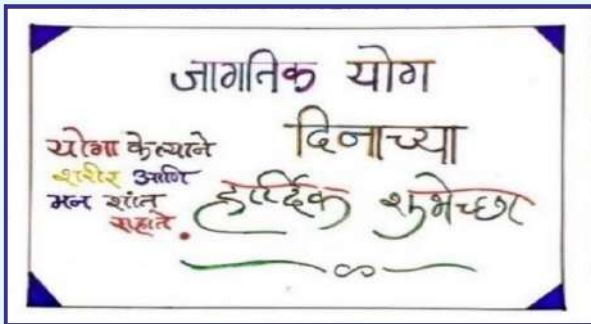 जागतिक योग
दिनाच्या
हार्दिक शुभेच्छा
योगा केल्याने
शरीर आणि
मन शांत
राहाते.